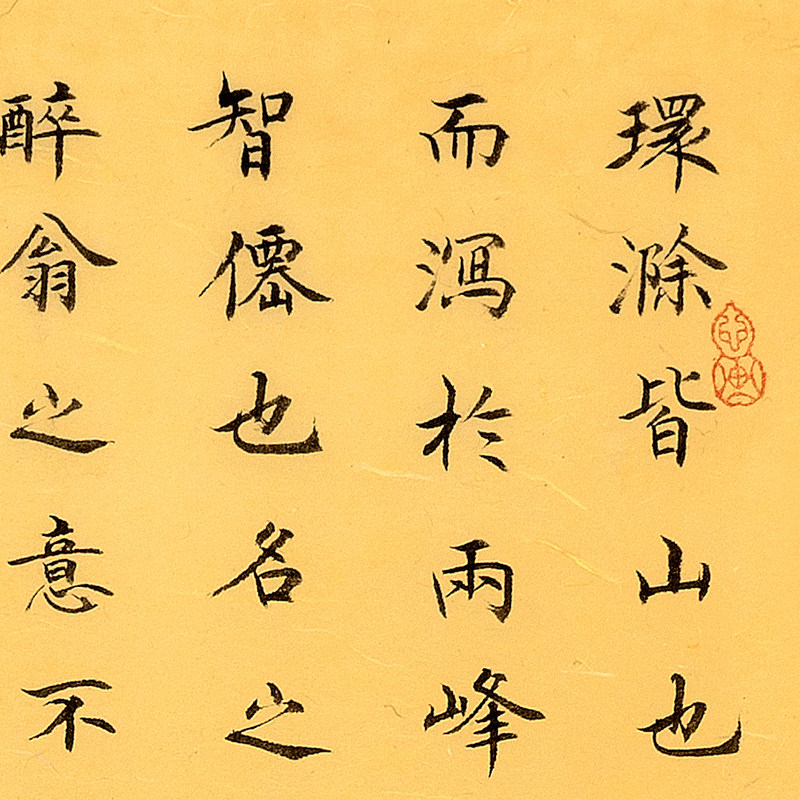 環滁皆山也
而瀉於兩峰
智僊也名之
醉翁之意不